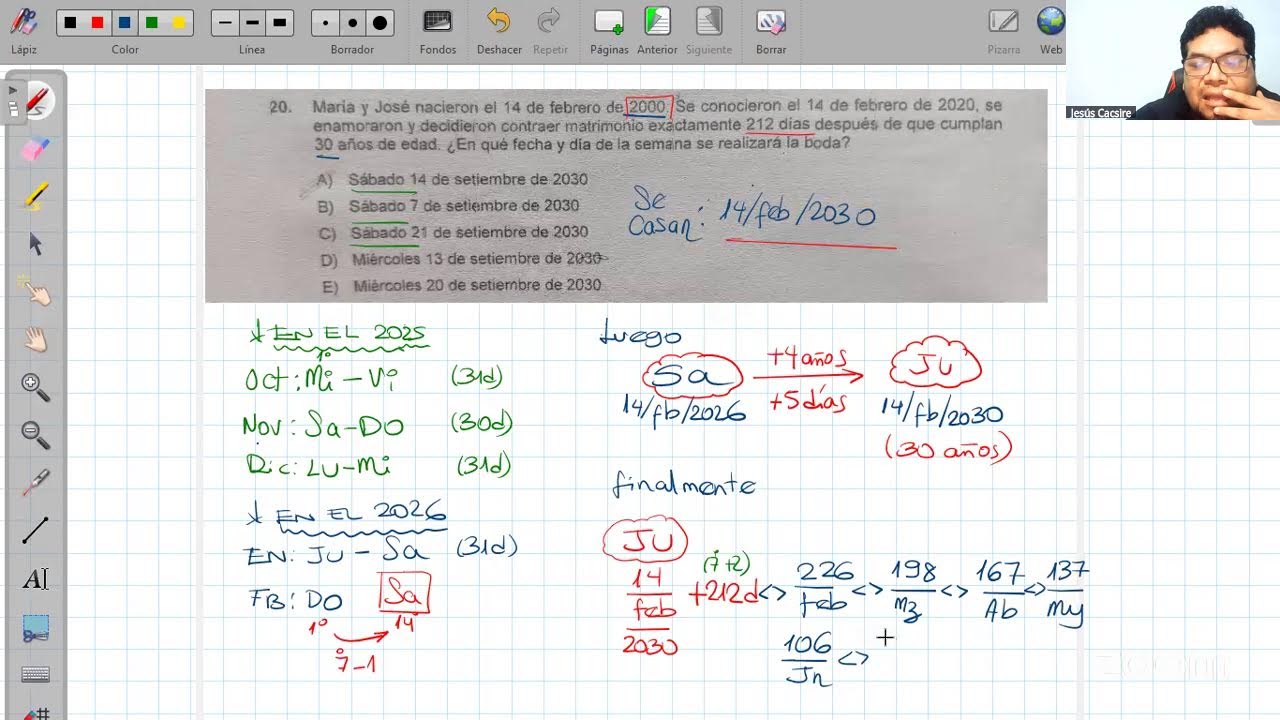 Lápiz
Color
Línea
Borrador
Fondos
Deshacer
Repetir
Páginas
Anterior
Siguiente
Borrar
Pizarra
Web
Jesús Cacsire
20. Maria y José nacieron el 14 de febrero de 2000. Se conocieron el 14 de febrero de 2020, se
enamoraron y decidieron contraer matrimonio exactamente 212 días después de que cumplan
30 años de edad. ¿En qué fecha y día de la semana se realizará la boda?
A) Sábado 14 de setiembre de 2030
B) Sábado 7 de setiembre de 2030
C) Sábado 21 de setiembre de 2030
D) Miércoles 13 de setiembre de 2030
E) Miércoles 20 de setiembre de 2030
Se
Casan: 14/feb/2030
EN EL 2025
1°
Oct: Mi - Vi (31d)
Nov: Sa - DO (30d)
Dic: LU - Mi (31d)
EN EL 2026
EN: JU - Sa (31d)
FB: DO Sa
1° 14
7-1
Luego
Sa +4 años JU
+5 días
14/fb/2026 14/fb/2030
(30 años)
finalmente
JU
14/feb/2030 +212d (7+2) <> 226/feb <> 198/Mz <> 167/Ab <> 137/My
106/Jn <>
AI